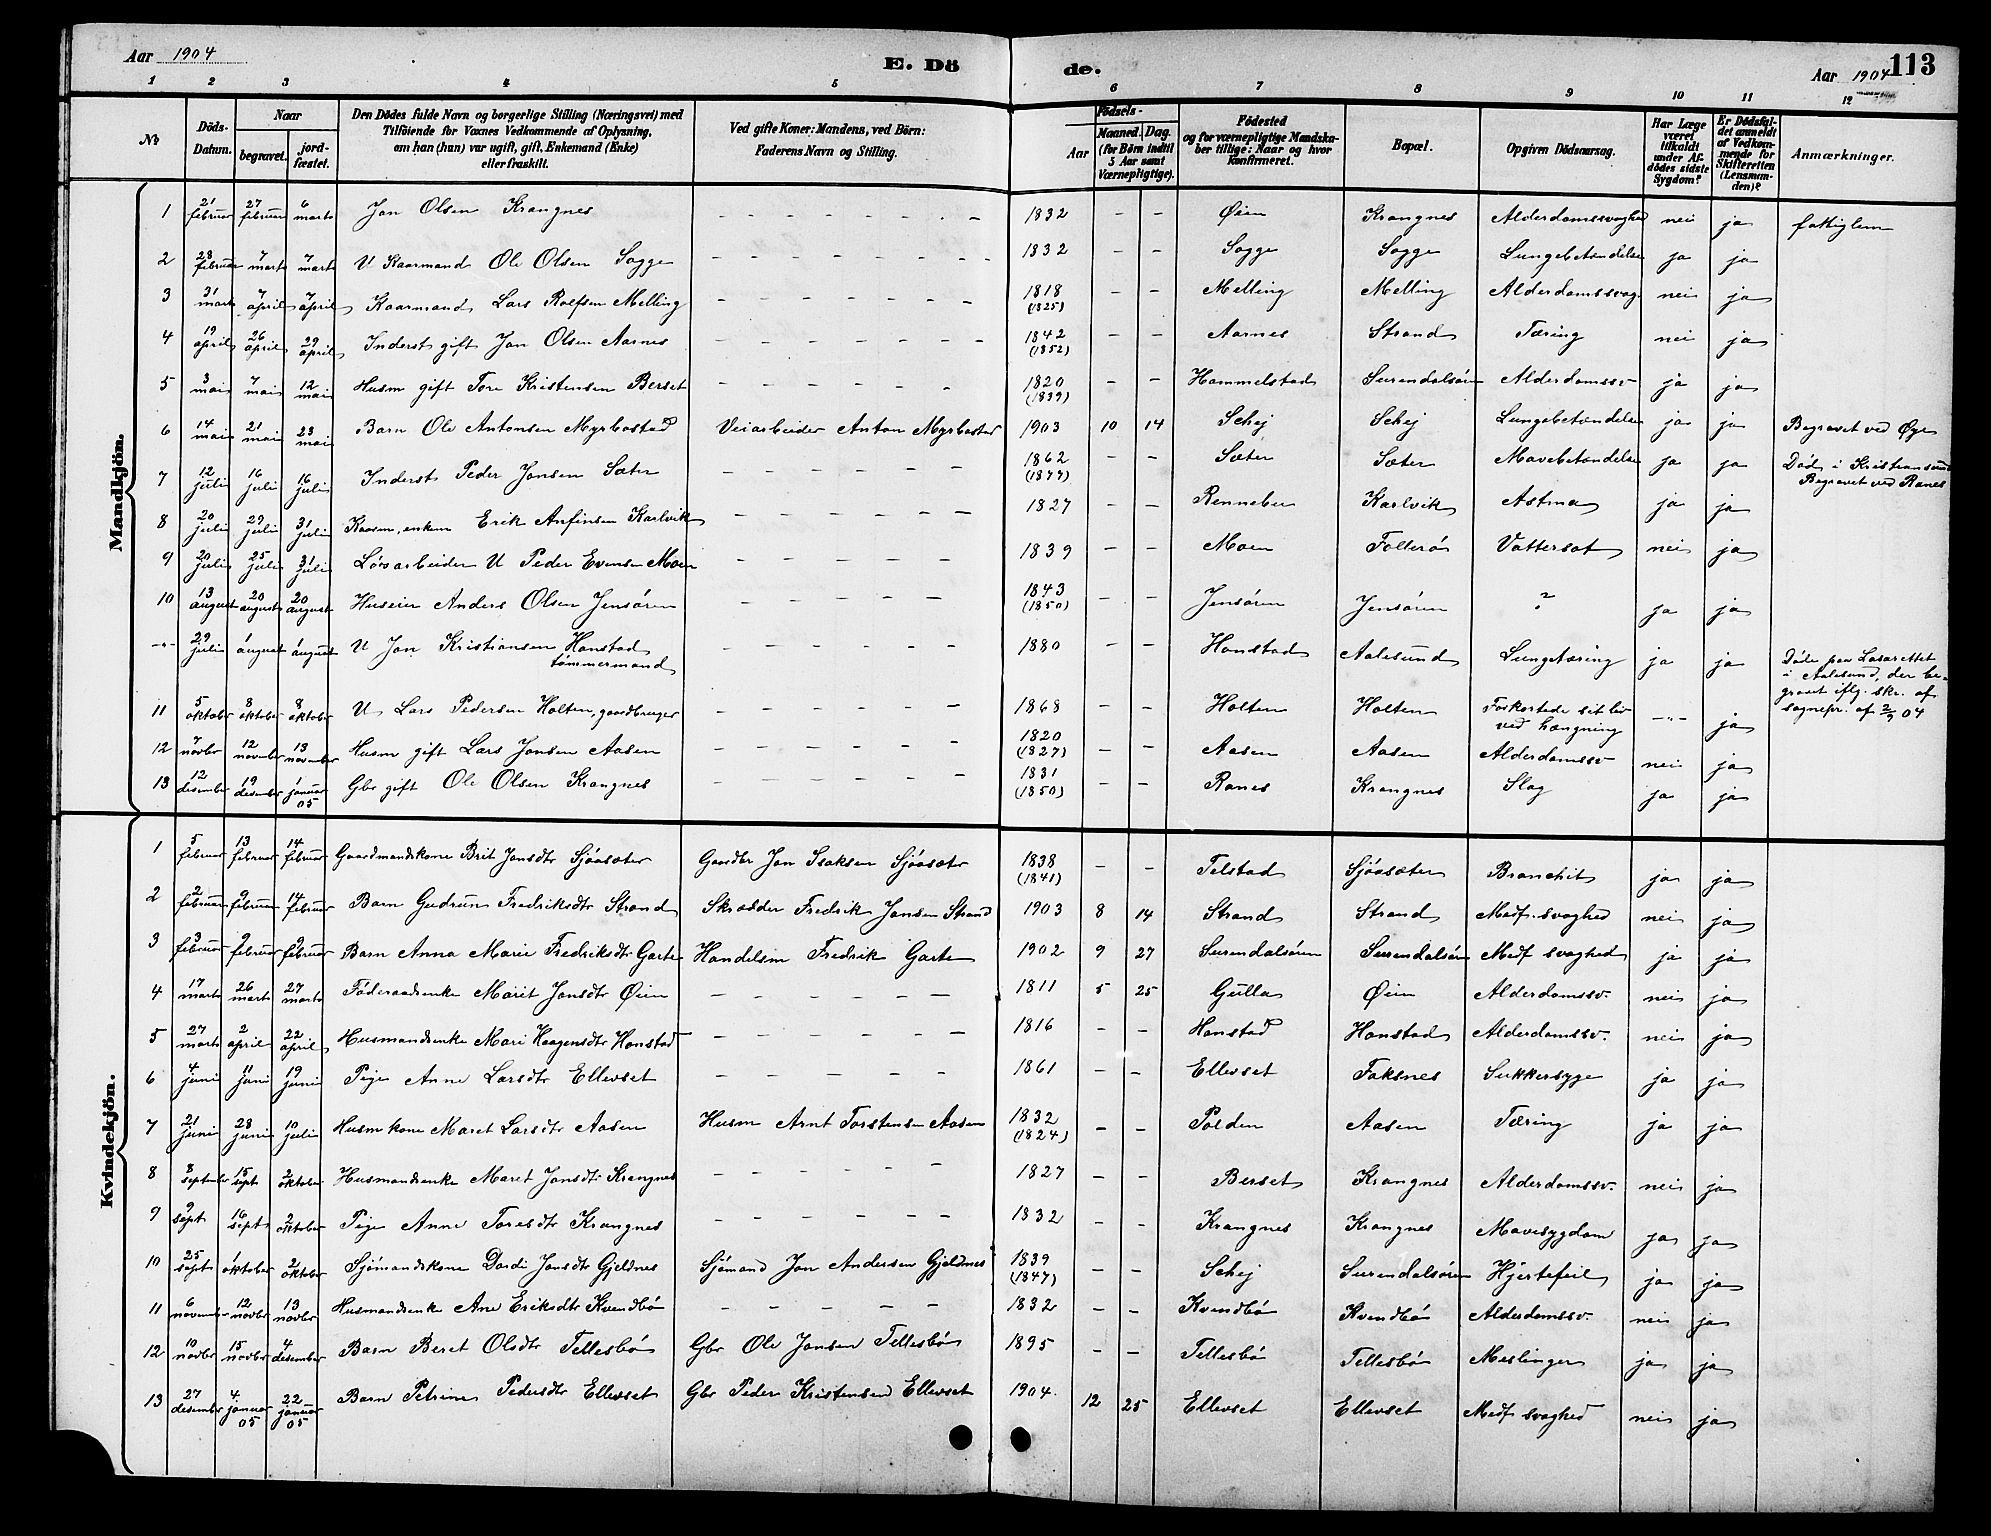 Aar 1904
E. Dö de.
Aar 1904 113
1 2 3 4 5 6 7 8 9 10 11 12
№
Döds-Datum.
Naar
begravet.
jord-fæstet.
Den Dödes fulde Navn og borgerlige Stilling (Næringsvei) med
Tilföiende for Voxnes Vedkommende af Oplysning,
om han (hun) var ugift, gift, Enkemand (Enke)
eller fraskilt.
Ved gifte Koner: Mandens, ved Börn:
Faderens Navn og Stilling.
Födsels-
Aar
Maaned. Dag.
(for Börn indtil
5 Aar samt
Værnepligtige).
Födested
og for værnepligtige Mandska-
ber tillige: Naar og hvor
konfirmeret.
Bopæl.
Opgiven Dödsaarsag.
Har Læge
været
tilkaldt
under Af-
dödes sidste
Sygdom?
Er Dödsfal-
det anmeldt
af Vedkom-
mende for
Skifteretten
(Lensman-
den)?
Anmærkninger.
Mandkjön.
1 21 februar 27 februar 6 marts Jon Olsen Krangnes - - - 1832 - - Øien Krangnes Alderdomssvaghed nei ja fattiglem
2 28 februar 7 marts 7 marts U Kaarmand Ole Olsen Sogge - - - 1832 - - Sogge Sogge Lungebetændelse ja ja
3 31 marts 7 april 7 april Kaarmand Lars Rolfsen Melling - - - 1818 (1825) - - Melling Melling Alderdomssvag. nei ja
4 19 april 26 april 29 april Inderst gift Jon Olsen Aarnes - - - 1842 (1852) - - Aarnes Strand Tæring nei ja
5 3 mai 7 mai 12 mai Husm gift Tore Kristensen Berset - - - 1820 (1839) - - Hammelstad Surendalsøren Alderdomssv ja ja
6 14 mai 21 mai 23 mai Barn Ole Antonsen Myrbostad Veiarbeider Anton Myrbostad 1903 10 14 Schej Schej Lungebetændelse ja ja Begravet ved Øye
7 12 juli 16 juli 16 juli Inderst Peder Jonsen Sæter - - - 1862 (1877) - - Sæter Sæter Mavebetændelse ja ja Død i Kristiansund
Begravet ved Ranes
8 20 juli 29 juli 31 juli Kaarm, enkem Erik Anfinsen Karlvik - - - 1827 - - Rennebu Karlvik Astma ja ja
9 20 juli 25 juli 31 juli Løsarbeider U Peder Evensen Moen - - - 1839 - - Moen Folterø Vattersot nei ja
10 13 august 20 august 20 august Huseier Anders Olsen Jensøren - - - 1843 (1850) - - Jensøren Jensøren ? ja ja
-"- 29 juli 1 august 1 august U Jon Kristiansen Honstad
tømmermand - - - 1880 - - Honstad Aalesund Lungetæring ja ja Døde paa Lasarettet
i Aalesund, der be-
gravet iflg. skr. af
sognepr. af 2/9 04
11 5 oktober 8 oktober 8 oktober U Lars Pedersen Holten, gaardbruger - - - 1868 - - Holten Holten Forkortede sit liv
ved hængning -"- ja
12 7 novbr 12 november 13 november Husm gift Lars Jonsen Aasen - - - 1820 (1827) - - Aasen Aasen Alderdomssv nei ja
13 12 desember 19 desember 1 januar 05 Gbr gift Ole Olsen Krangnes - - - 1831 (1850) - - Ranes Krangnes Slag ja ja
Kvindekjön.
1 5 februar 13 februar 14 februar Gaardmandskone Brit Jonsdtr Sjøasæter Gaardbr Jon Isaksen Sjøasæter 1838 (1841) - - Telstad Sjøasæter Bronchit ja ja
2 2 februar 9 februar 14 februar Barn Gudrun Fredriksdtr Strand Skrædder Fredrik Jonsen Strand 1903 8 14 Strand Strand Medf. svaghed nei ja
3 3 februar 9 februar 9 februar Barn Anna Marie Fredriksdtr Garte Handelsm Fredrik Garte 1902 9 27 Surendalsøren Surendalsøren Medf svaghed ja ja
4 17 marts 26 marts 27 marts Føderaadsenke Marit Jonsdtr Øien - - - 1811 5 25 Gulla Øien Alderdomssv. nei ja
5 27 marts 2 april 22 april Husmandsenke Mari Haagensdtr Honstad - - - 1816 - - Honstad Honstad Alderdomssv. nei ja
6 4 juni 11 juni 19 juni Pige Anne Larsdtr Ellevset - - - 1861 - - Ellevset Foksnes Sukkersyge ja ja
7 21 juni 28 juni 10 juli Husm kone Maret Larsdtr Aasen Husm Arnt Torstensen Aasen 1832 (1824) - - Polden Aasen Tæring ja ja
8 8 september 15 sept 2 oktober Husmandsenke Maret Jonsdtr Krangnes - - - 1827 - - Berset Krangnes Alderdomssv. nei ja
9 9 sept 16 sept 2 oktober Pige Anne Toresdtr Krangnes - - - 1832 - - Krangnes Krangnes Mavesygdom ja ja
10 25 sept 1 oktober 2 oktober Sjømandskone Dordi Jonsdtr Gjeldnes Sjømand Jon Andersen Gjeldnes 1839 (1847) - - Schej Surendalsøren Hjertefeil ja ja
11 6 november 12 novbr 13 novbr Husmandsenke Ane Eriksdtr Kvendbø - - - 1832 - - Kvendbø Kvendbø Alderdomssv. nei ja
12 10 novbr 15 novbr 4 desember Barn Beret Olsdtr Tellesbø Gbr Ole Jonsen Tellesbø 1895 - - Tellesbø Tellesbø Meslinger ja ja
13 27 desember 4 januar 05 22 januar 05 Barn Petrine Pedersdtr Ellevset Gbr Peder Kristensen Ellevset 1904. 12 25 Ellevset Ellevset Medf svaghed nei ja